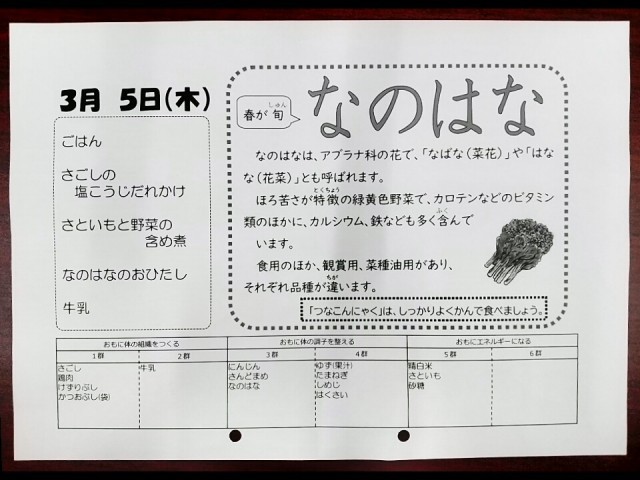 3月 5日(木)
ごはん
さごしの
塩こうじだれかけ
さといもと野菜の
含め煮
なのはなのおひたし
牛乳
春が旬
しゅん
なのはな
なのはなは、アブラナ科の花で、「なばな(菜花)」や「はな
な(花菜)」とも呼ばれます。
とくちょう
ほろ苦さが特徴の緑黄色野菜で、カロテンなどのビタミン
類のほかに、カルシウム、鉄なども多く含んで
ふく
います。
食用のほか、観賞用、菜種油用があり、
ちが
それぞれ品種が違います。
「つなこんにゃく」は、しっかりよくかんで食べましょう。
おもに体の組織をつくる おもに体の調子を整える おもにエネルギーになる
1群 2群 3群 4群 5群 6群
さごし 牛乳 にんじん ゆず(果汁) 精白米
鶏肉 さんどまめ たまねぎ さといも
けずりぶし なのはな しめじ 砂糖
かつおぶし(袋) はくさい